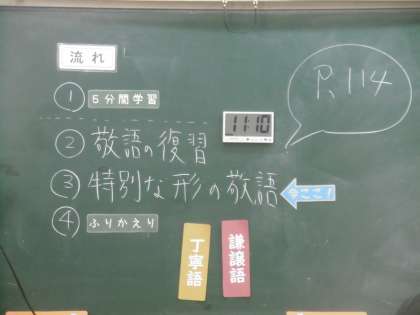 流れ
① 5分間学習
② 敬語の復習
③ 特別な形の敬語
今ここ!
④ ふりかえり
11:10
P.114
丁寧語
謙譲語